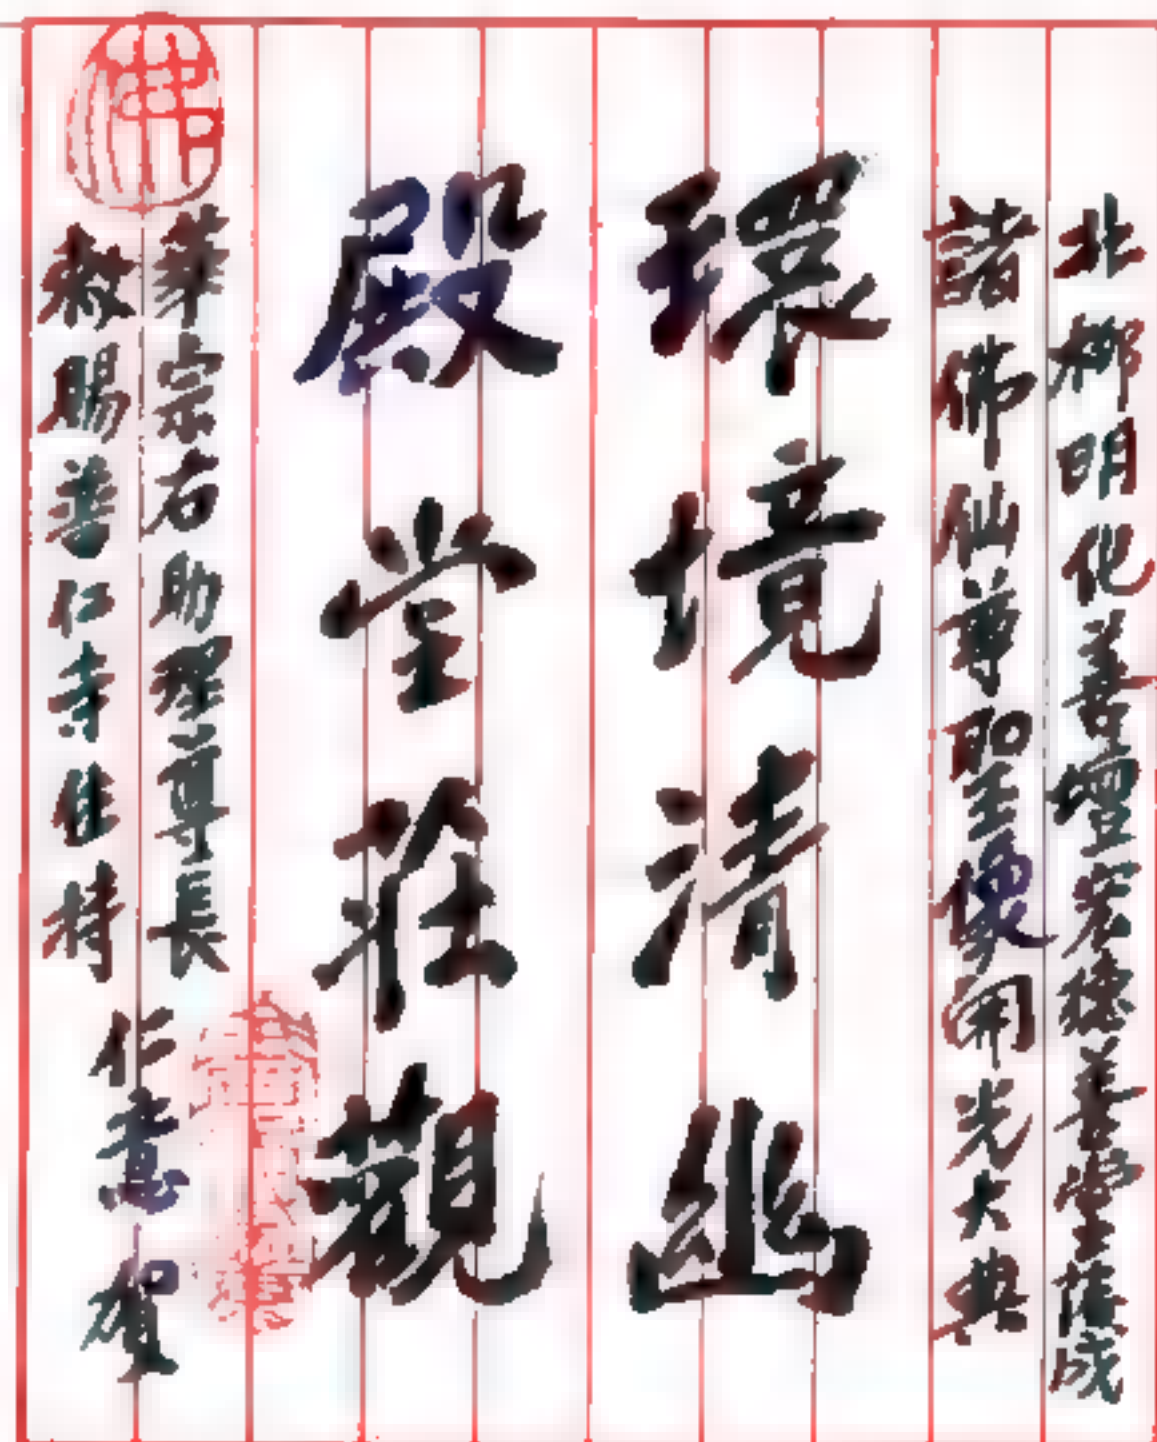 北柳明化善壇宏德善堂落成
諸佛仙尊聖像開光大典
環境清幽
殿堂莊觀
華宗右助理尊長
敕賜普仁寺住持
仁意賀
佛